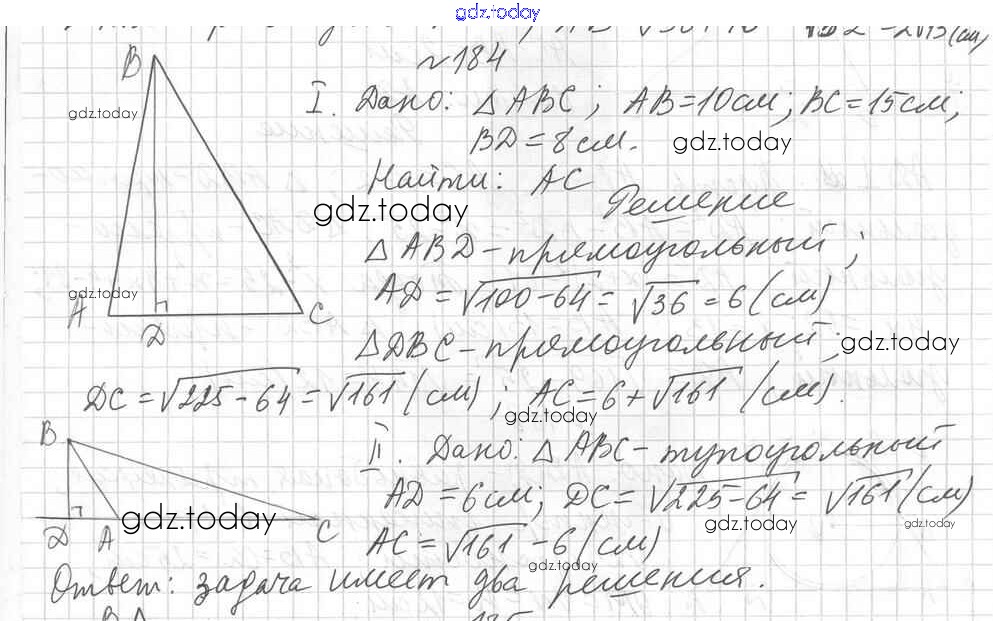 gdz.today
№184
B
I. Дано: △ABC; AB=10см; BC=15см;
gdz.today
BD=8см. gdz.today
Найти: AC
gdz.today
Решение
△ABD-прямоугольный;
gdz.today
AD=√100-64=√36=6(см)
A D C
△DBC-прямоугольный; gdz.today
DC=√225-64=√161(см); AC=6+√161(см).
gdz.today
B
II. Дано: △ABC-тупоугольный
AD=6см; DC=√225-64=√161(см)
gdz.today gdz.today gdz.today
D A C
AC=√161-6(см)
gdz.today
Ответ: задача имеет два решения.